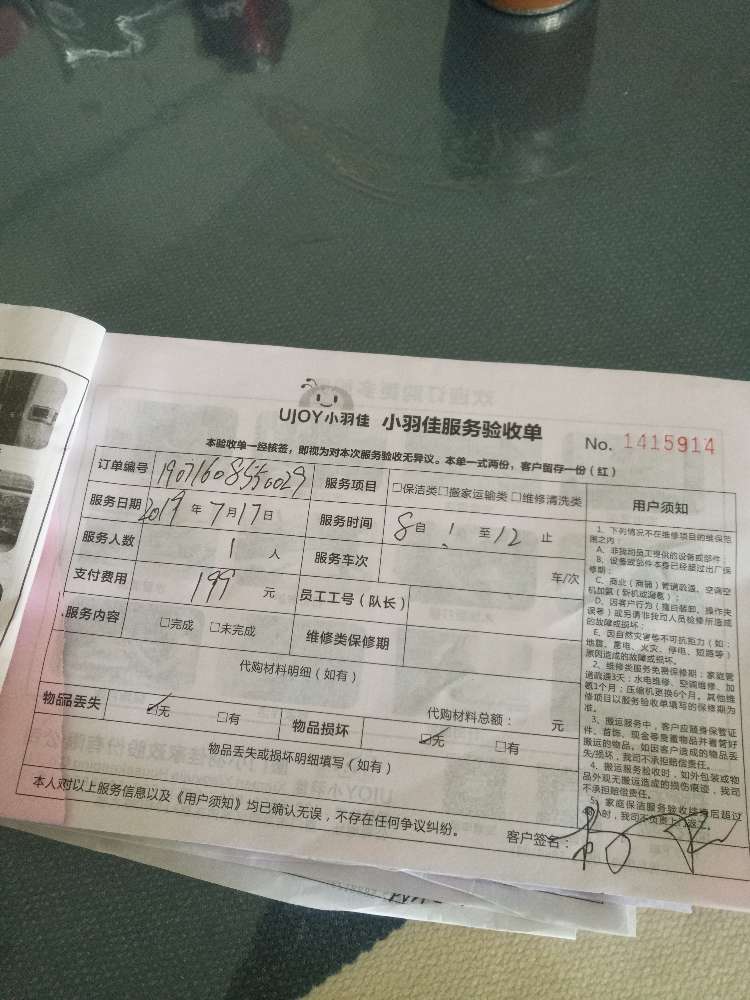 UJOY小羽佳 小羽佳服务验收单
No. 1415914
本验收单一经核签，即视为对本次服务验收无异议。本单一式两份，客户留存一份（红）
订单编号 19071608550029 服务项目 □保洁类□搬家运输类 □维修清洗类
服务日期 2019 年 7 月 17 日 服务时间 8 自 至 12 止
服务人数 1 人 服务车次 车/次
支付费用 199 元 员工工号（队长）
服务内容 □完成 □未完成 维修类保修期
代购材料明细（如有）
代购材料总额： 元
物品丢失 ☑无 □有 物品损坏 ☑无 □有
物品丢失或损坏明细填写（如有）
本人对以上服务信息以及《用户须知》均已确认无误，不存在任何争议纠纷。
客户签名：
用户须知
1、下列情况不在维修项目的维保范
围之内：
A、非我司员工提供的设备或部件；
B、设备或部件本身已经超过出厂保
修期；
C、商业（商铺）管道疏通、空调空
机加氨（新机或漏氨）；
D、因客户行为（擅自装卸、操作失
误等）或另请非我司人员检修所造成
的故障或损坏；
E、因自然灾害等不可抗阻力（如：
地震、雷电、火灾、停电、短路等）
原因造成的故障或损坏。
2、维修类服务免费保修期：家庭管
道疏通3天；水电维修、空调维修、加
氨1个月；压缩机更换6个月。其他维
修项目以服务验收单填写的保修期为
准。
3、搬运服务中，客户应随身保管证
件、首饰、现金等贵重物品并看管好
搬运的物品，如因客户造成的物品丢
失/损坏，我司不承担赔偿责任。
4、搬运服务验收时，如外包装或物
品外观无搬运造成的损伤痕迹，我司
不承担赔偿责任。
5、家庭保洁服务验收结束后超过
小时，我司不负责上门返工。